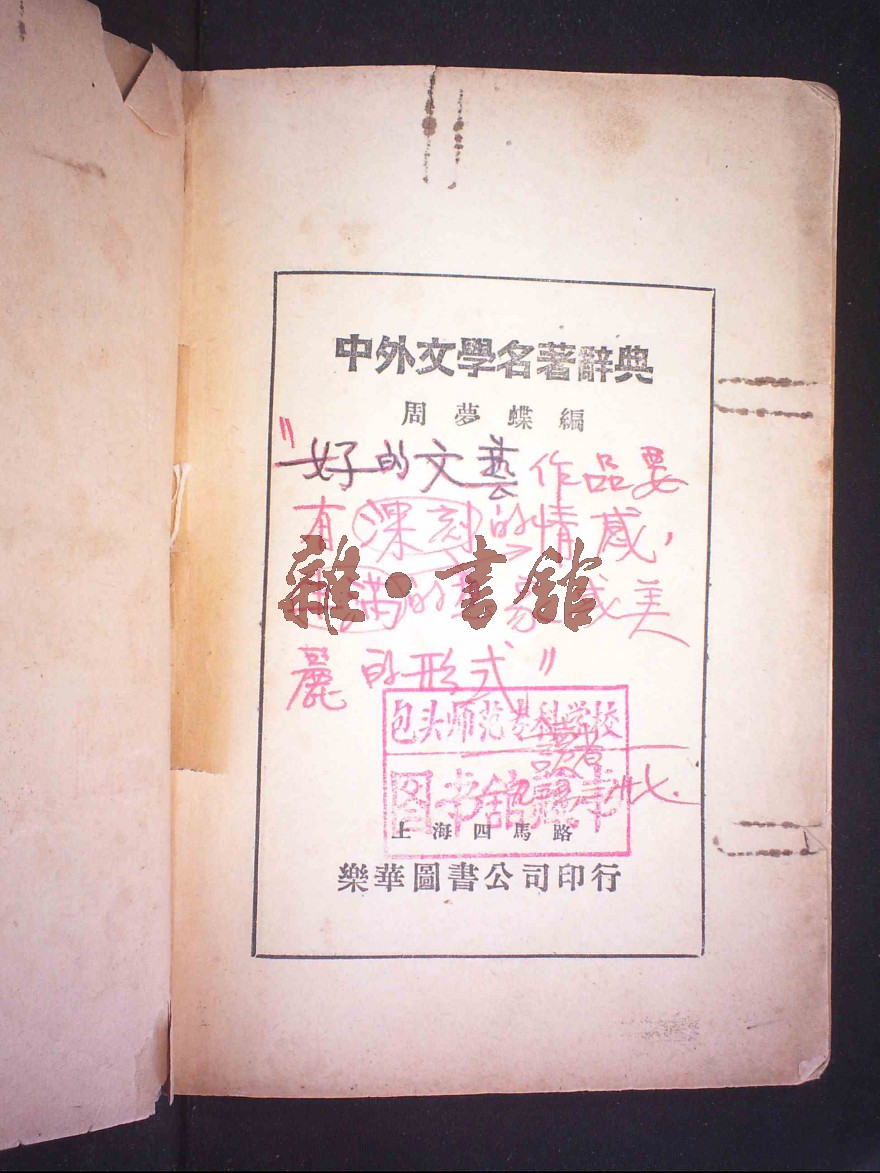 中外文學名著辭典
周夢蝶編
"好的文藝作品要
有深刻的情感,
滿的 美
麗的形式"
雜·書館
包头师范专科学校
图书馆藏书
讀者
上海四馬路
樂華圖書公司印行